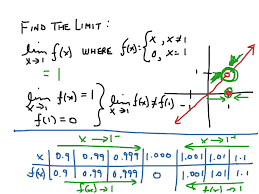 FIND THE LIMIT:
lim f(x) WHERE f(x)= { x, x≠1
x→1 0, x=1
= 1
1
lim f(x) = 1
x→1
f(1) = 0
} lim f(x) ≠ f(1)
x→1
-1 1
-1
x → 1⁻ x → 1⁺
x 0.9 0.99 0.999 1.000 1.001 1.01 1.1
f(x) 0.9 0.99 0.999 0 1.001 1.01 1.1
f(x) → 1 f(x) → 1